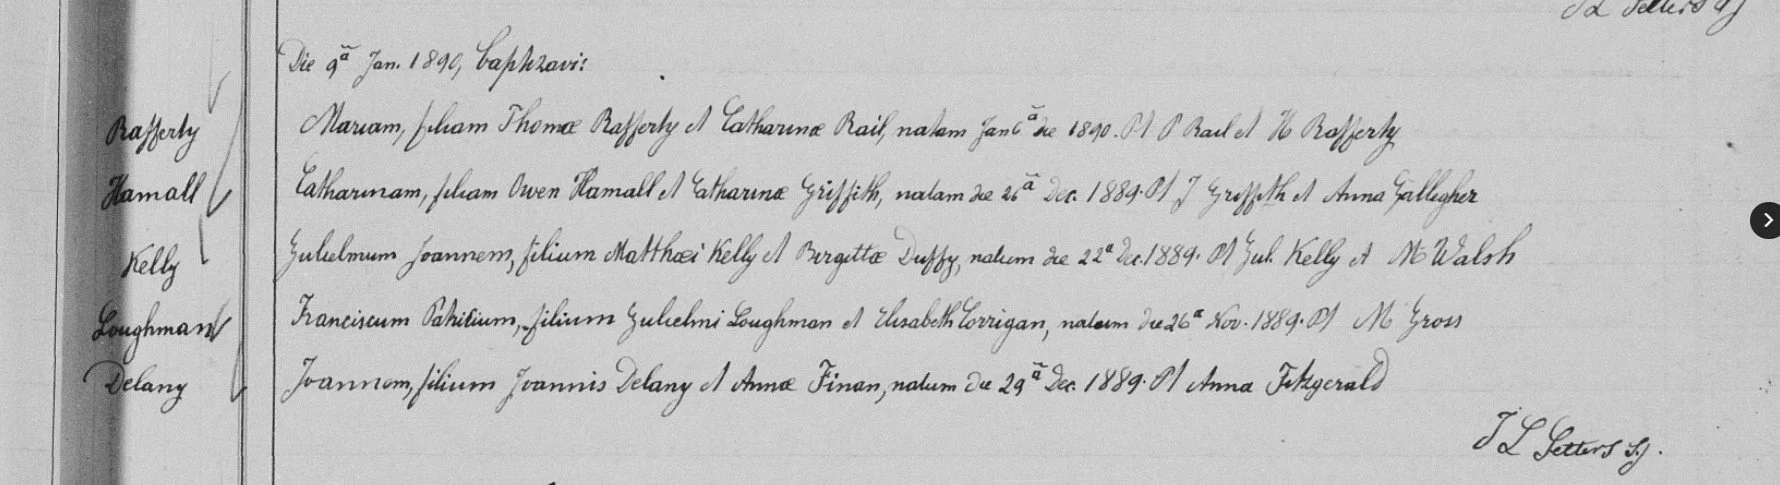 Die 9ª Jan. 1890, baptizavi:
Rafferty Mariam, filiam Thomæ Rafferty et Catharinæ Rail, natam Jan 6ª die 1890. PP P Rail et H Rafferty
Hamall Catharinam, filiam Owen Hamall et Catharinæ Griffith, natam die 26ª Dec. 1889. PP J Griffith et Anna Gallegher
Kelly Gulielmum Joannem, filium Matthæi Kelly et Birgittæ Duffy, natum die 22ª Dec. 1889. PP Gul. Kelly et M Walsh
Loughman Franciscum Patricium, filium Gulielmi Loughman et Elisabeth Corrigan, natum die 26ª Nov. 1889. PP M Gross
Delany Joannem, filium Joannis Delany et Annæ Finan, natum die 29ª Dec. 1889. PP Anna Fitzgerald
S.J.